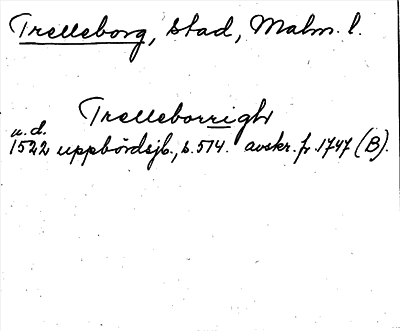 Trelleborg, stad, Malm. l.
Trelleborrigh
u.d.
1522 uppbördsjb., s. 514. avskr. fr. 1747 (B).